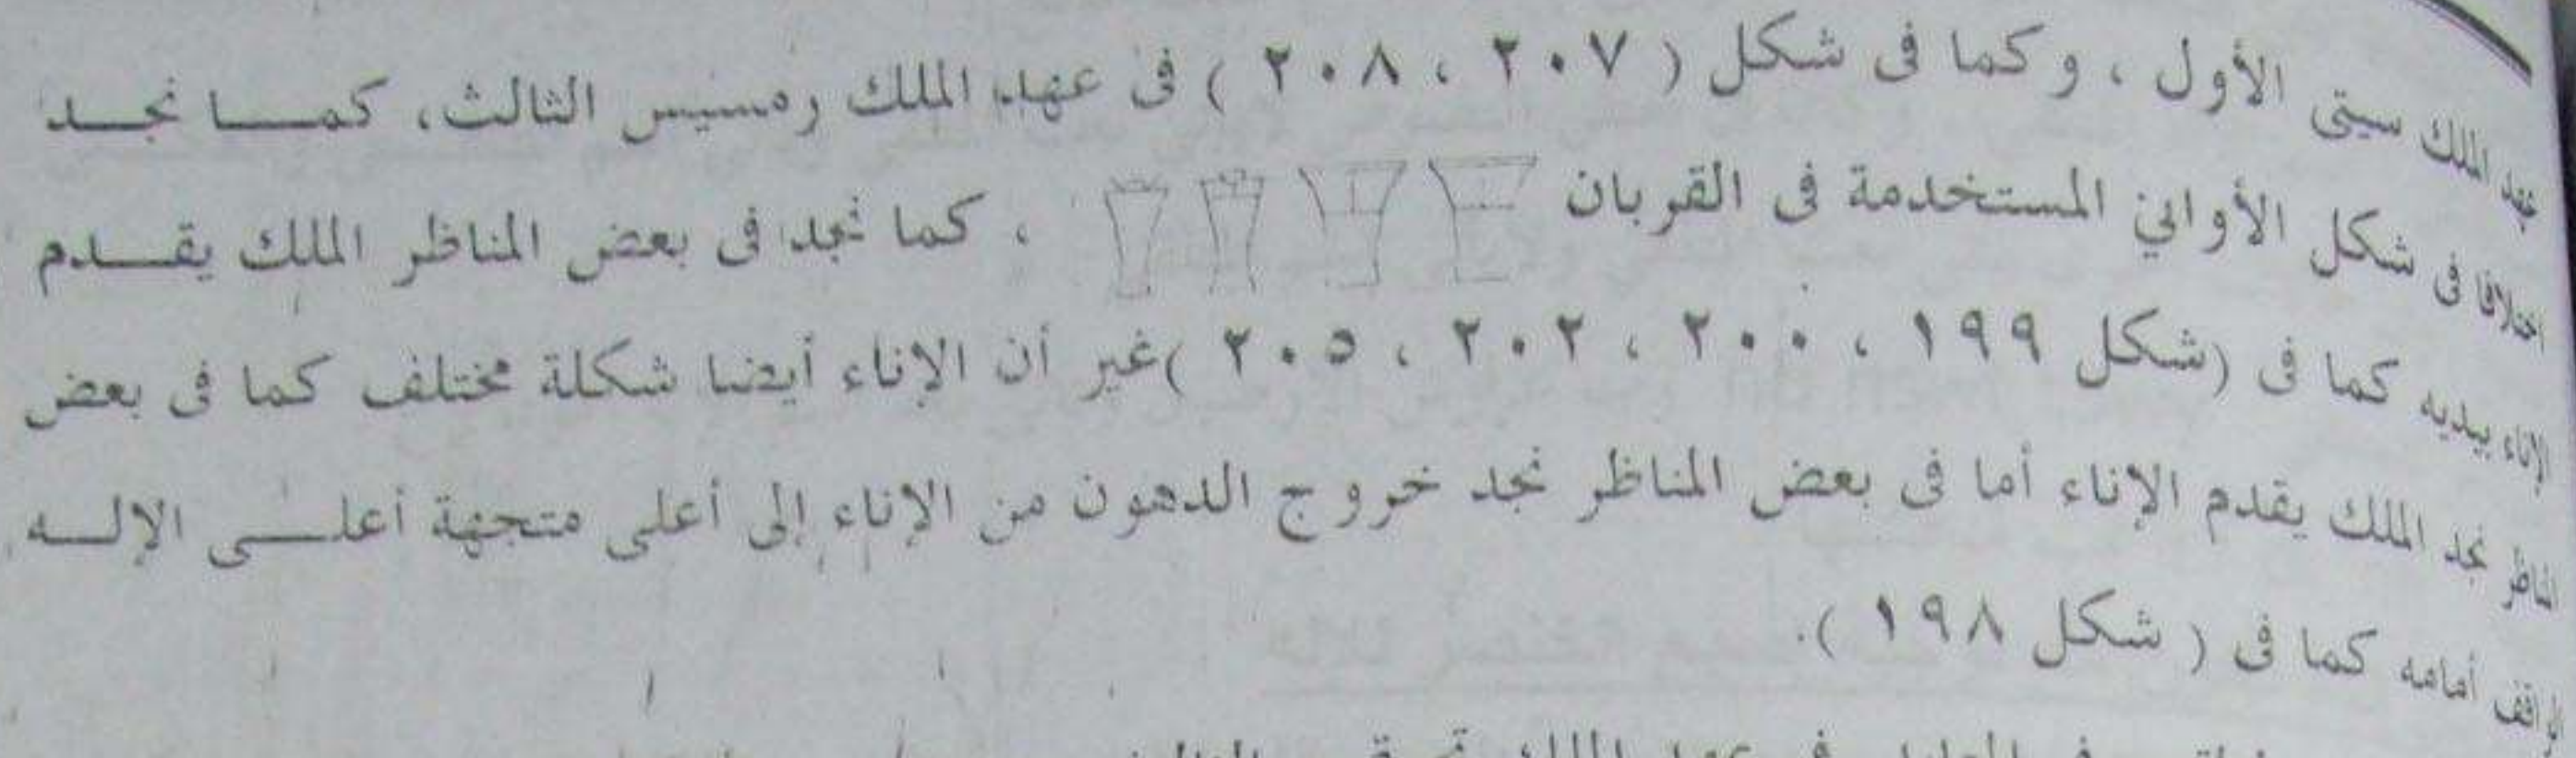 بعهد الملك سيتى الأول ، وكما فى شكل ( ٢٠٧ ، ٢٠٨ ) فى عهد الملك رمسيس الثالث، كمـــا نجـــد
اختلافا فى شكل الأواني المستخدمة فى القربان ، كما نجد فى بعض المناظر الملك يقـــدم
الإناء بيديه كما فى (شكل ١٩٩ ، ٢٠٠ ، ٢٠٢ ، ٢٠٥ )غير أن الإناء أيضا شكلة مختلف كما فى بعض
المناظر نجد الملك يقدم الإناء أما فى بعض المناظر نجد خروج الدهون من الإناء إلى أعلى متجهة أعلـــى الإلـــه
الواقف أمامه كما فى ( شكل ١٩٨ ).